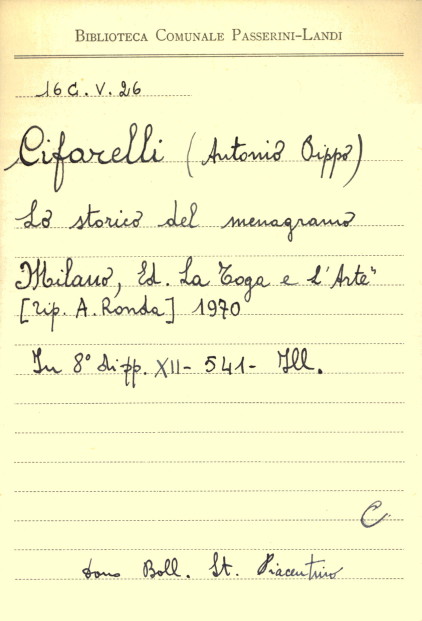 BIBLIOTECA COMUNALE PASSERINI-LANDI
16 C. V. 26
Cifarelli (Antonio Oippo)
Lo storico del menagramo
Milano, Ed. La Toga e l'Arte"
[Tip. A. Ronda] 1970
In 8° di pp. XII - 541 - Ill.
C
dono Boll. St. Piacentino